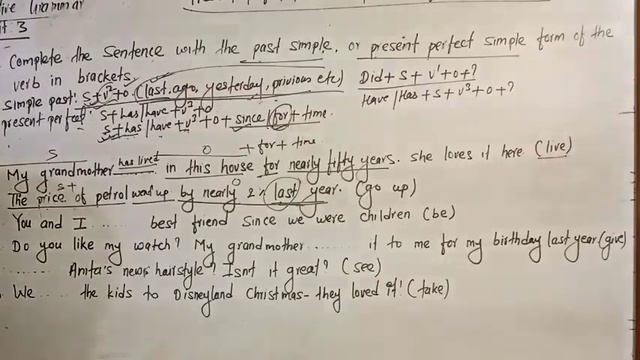 Grammar
3
Complete the sentence with the past simple, or present perfect simple form of the
verb in brackets.
simple past: S+V²+O. (last, ago, yesterday, privious etc) Did + S + V¹+O+?
present perfect: S+has/have+V³+O Have/Has + S + V³+O+?
S+has/have+V³+O + since/for + time.
S O + for + time
My grandmother has lived in this house for nearly fifty years. she loves it here (live)
S +
The price of petrol went up by nearly 2% last year. (go up)
You and I ...... best friend since we were children (be)
Do you like my watch? My grandmother ...... it to me for my birthday last year (give)
...... Anita's new hairstyle? Isnt it great? (see)
We ..... the kids to Disneyland Christmas- they loved it! (take)